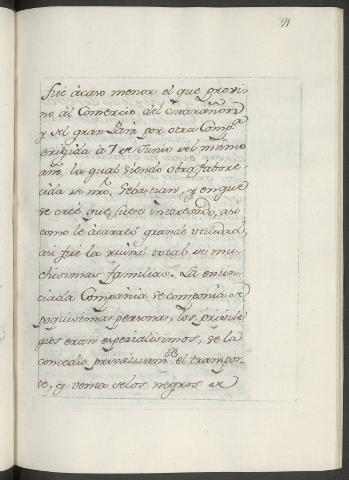 91
fué àcaso menor el que provi-
no al Comercio del Marañon
y el gran Pará por otra Comp.ª
erigida à 7 de Junio del mismo
año, la qual siendo obra favore-
cida de nro. Sebastian, y en que
se creé que fuese interesado, asi
como le acarreó grande utilidad,
asi fué la ruina total de mu-
chisimas familias. La enun-
ciada Compañia se componia de
poquisimas personas, los privile-
gios eran especialisimos, se la
concedia privativam.te el transpor-
te, y venta de los negros de